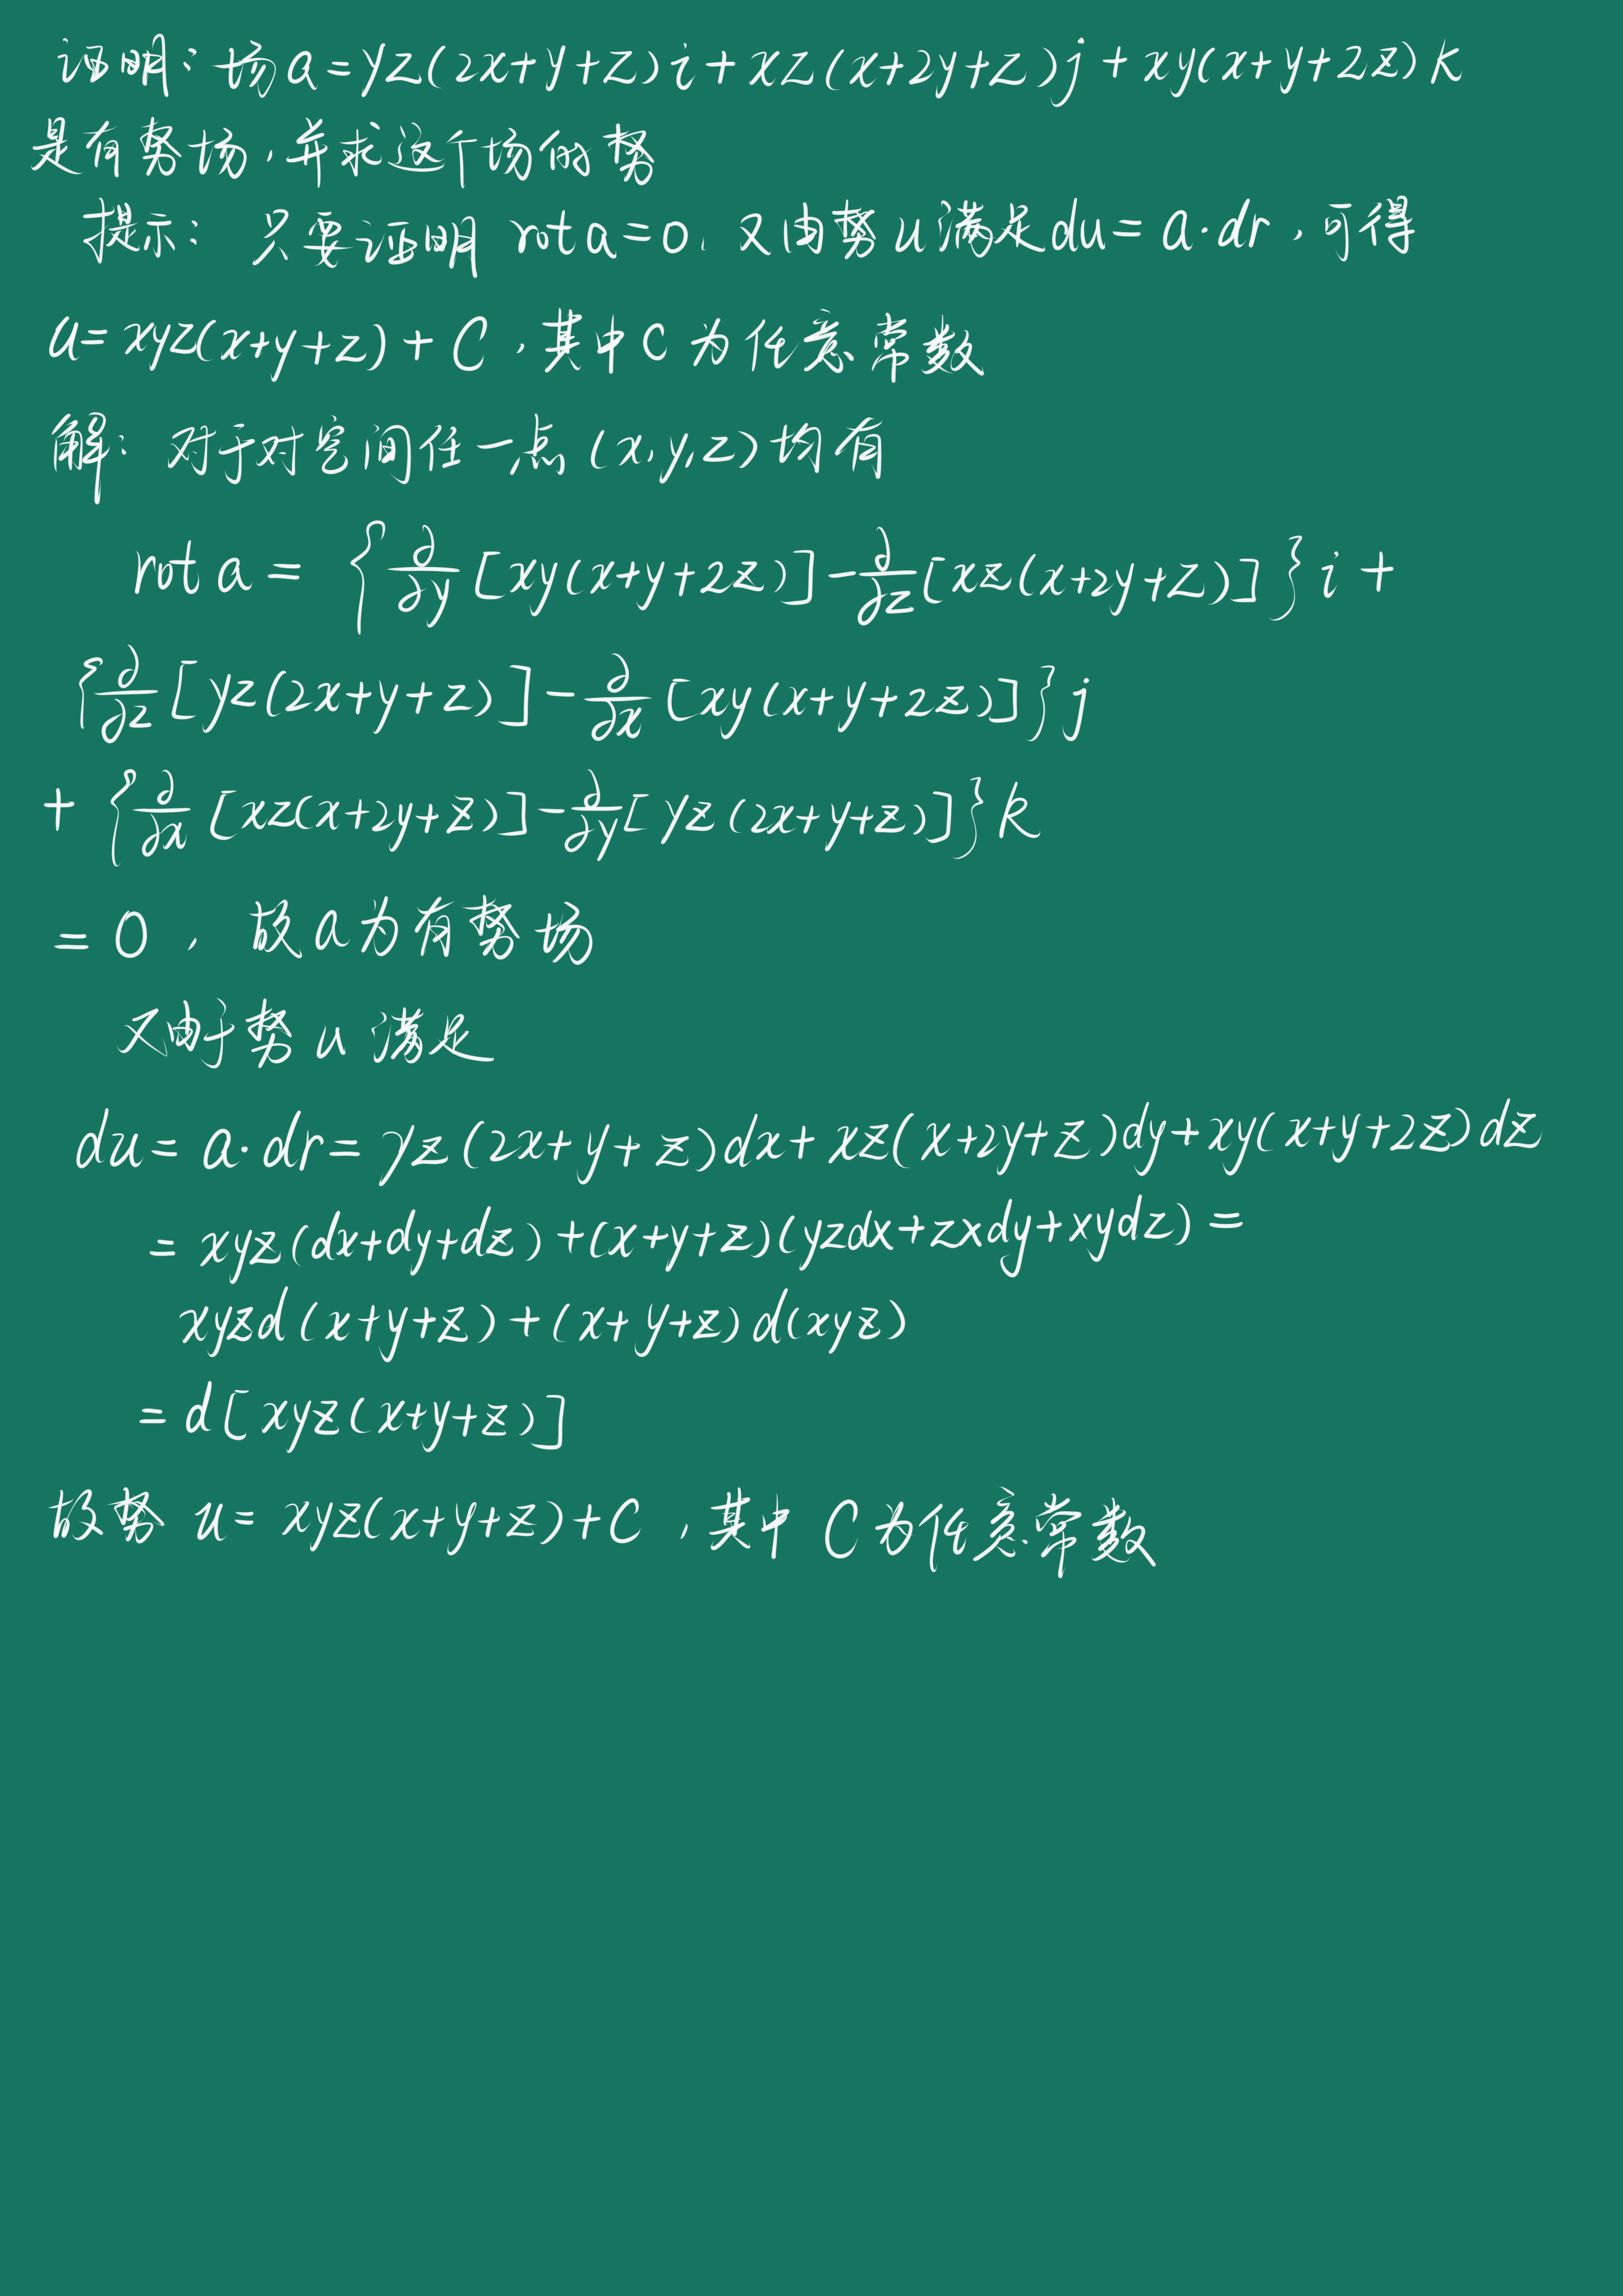 证明：场a=yz(2x+y+z)i+xz(x+2y+z)j+xy(x+y+2z)k
是有势场，并求这个场的势
提示： 只要证明 rot a=0. 又由势u满足du=a·dr，可得
u=xyz(x+y+z)+C，其中C为任意常数
解：对于对空间任一点(x,y,z)均有
rot a= {∂/∂y[xy(x+y+2z)]-∂/∂z[xz(x+2y+z)]}i+
{∂/∂z[yz(2x+y+z)]-∂/∂x[xy(x+y+2z)]}j
+{∂/∂x[xz(x+2y+z)]-∂/∂y[yz(2x+y+z)]}k
=0，故a为有势场
又由于势u满足
du=a·dr=yz(2x+y+z)dx+xz(x+2y+z)dy+xy(x+y+2z)dz
=xyz(dx+dy+dz)+(x+y+z)(yzdx+zxdy+xydz)=
xyzd(x+y+z)+(x+y+z)d(xyz)
=d[xyz(x+y+z)]
故势 u=xyz(x+y+z)+C，其中C为任意常数